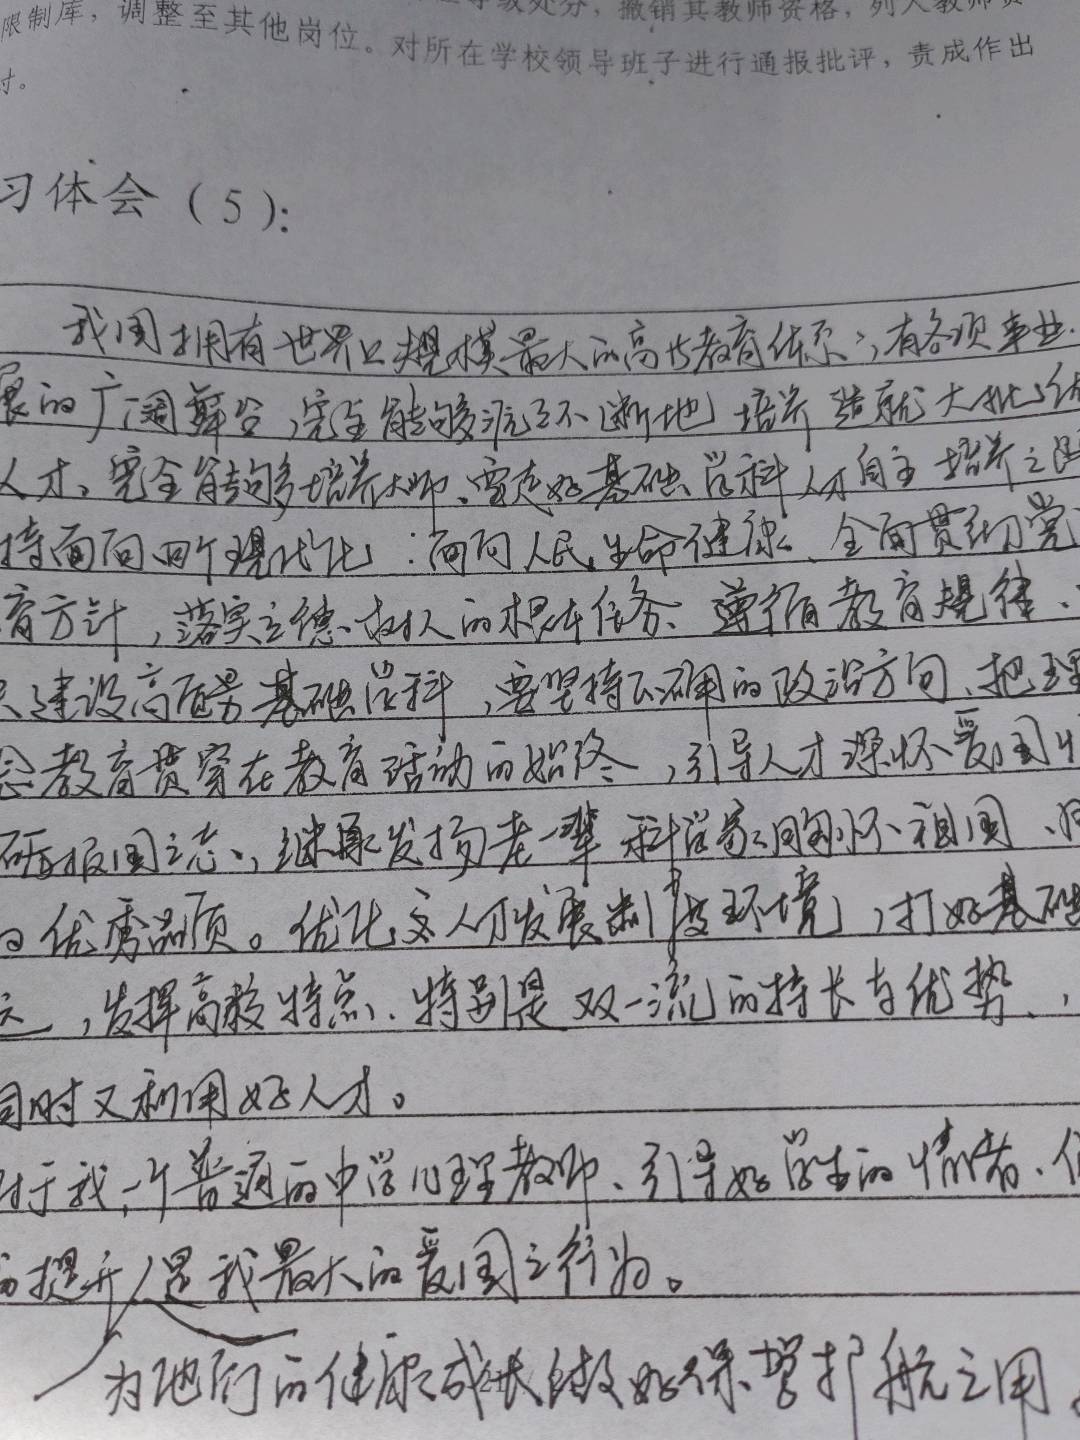 等级处分，撤销其教师资格，列入教师资
限制库，调整至其他岗位。对所在学校领导班子进行通报批评，责成作出
讨。
习体会（5）：
我国拥有世界上规模最大的高等教育体系，有各项事业
展的广阔舞台，完全能够源源不断地培养造就大批优
人才、完全能够多培养大师、要走好基础学科人才自主培养之路
持面向四个现代化：面向人民生命健康、全面贯彻党
育方针，落实立德树人的根本任务、遵循教育规律、
建设高质量基础学科，要坚持正确的政治方向、把理
念教育贯穿在教育活动的始终，引导人才深怀爱国
砺报国之志，继承发扬老一辈科学家胸怀祖国、
优秀品质。优化人才发展制度环境，打好基础
，发挥高校特点、特别是双一流的特长与优势、，
同时又利用好人才。
对于我，个普通的中学心理教师、引导好学生的情绪、
提升是我最大的爱国之行为。
为他们的健康成长做好保驾护航之用。